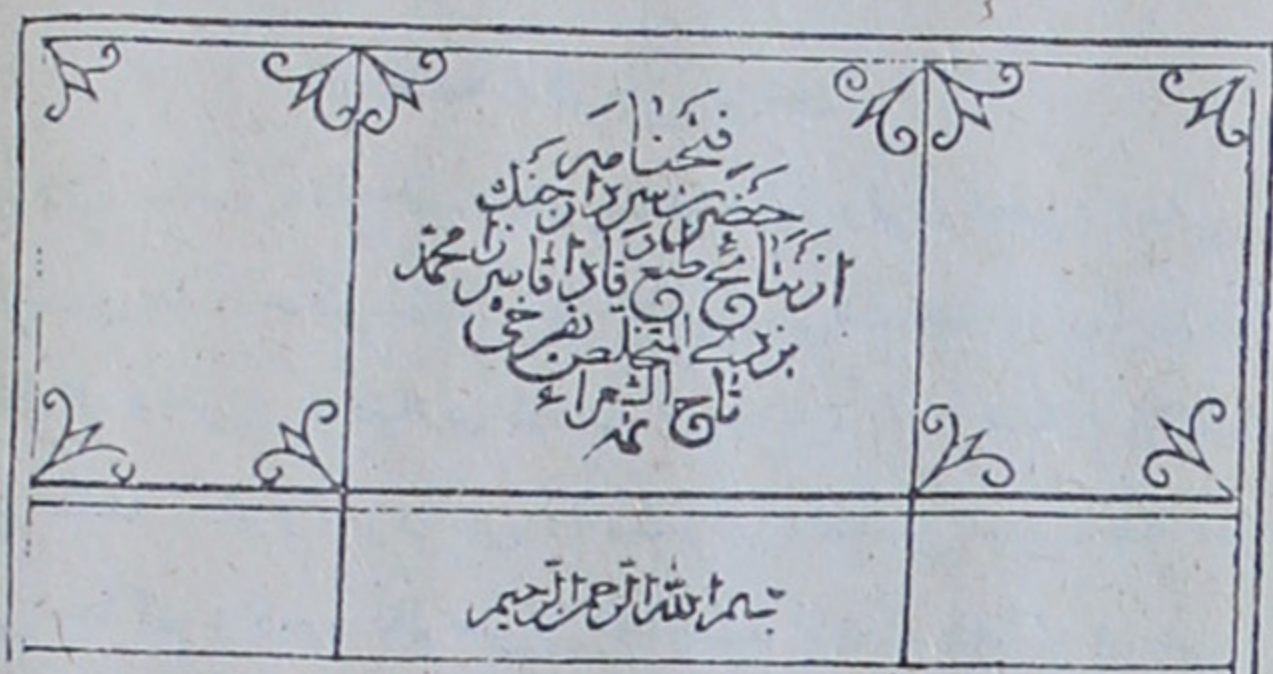 فتحنامه
حضرت سردار جنگ
از نتائج طبع وقاد آقا میرزا محمد
یزدی المتخلص بفرخی
تاج الشعراء
بسم الله الرحمن الرحیم